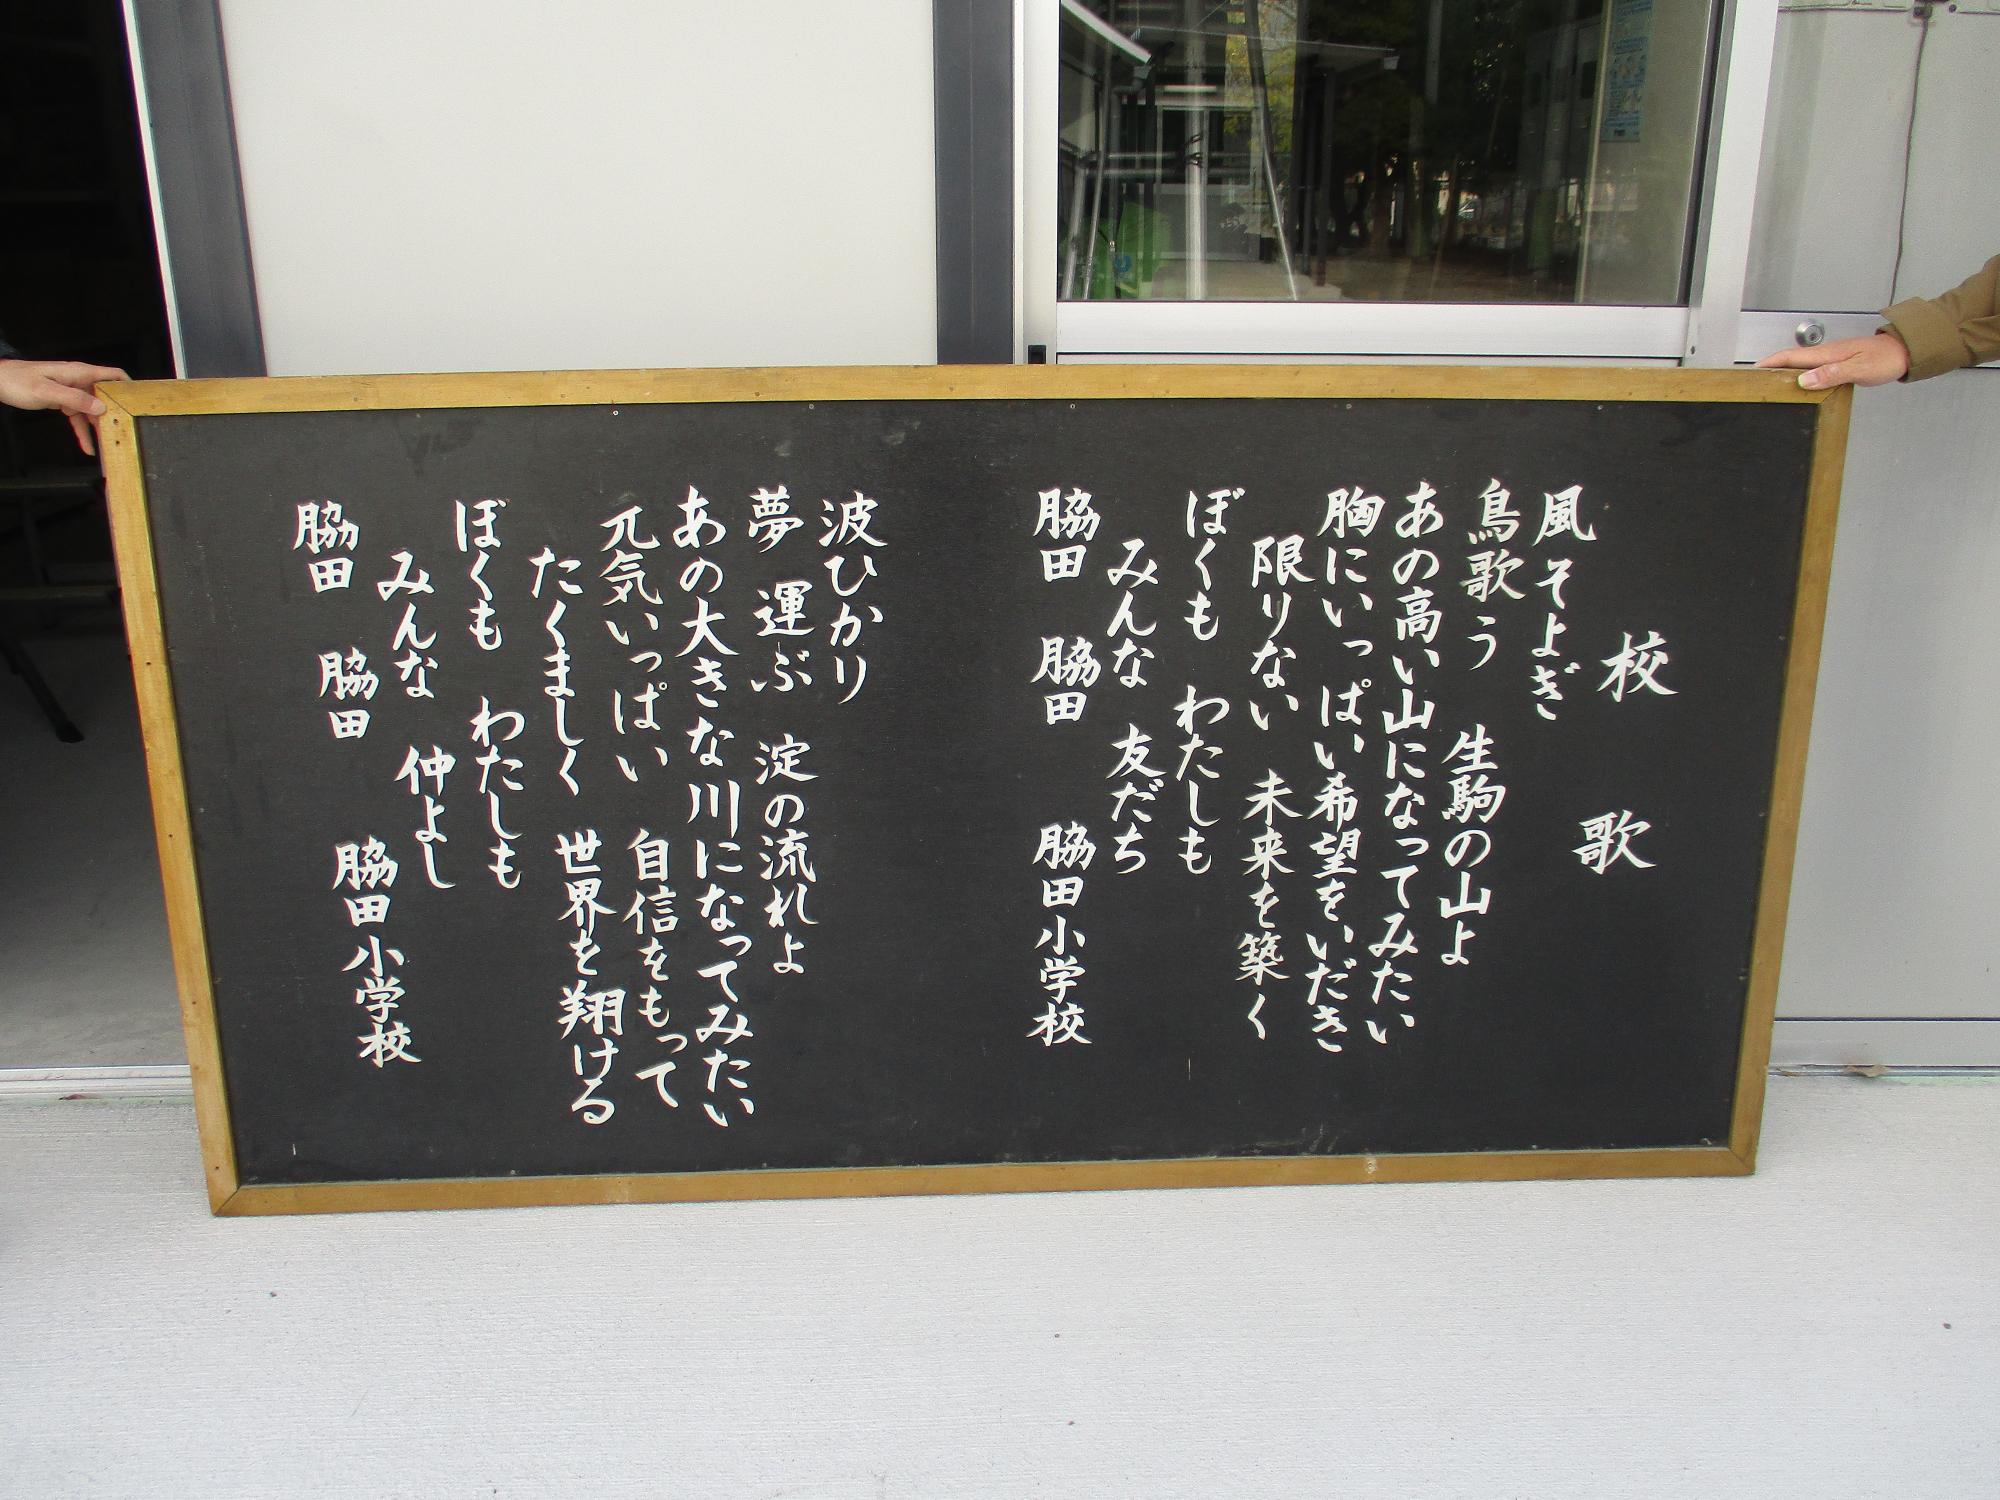 校歌
風そよぎ
鳥歌う 生駒の山よ
あの高い山になってみたい
胸にいっぱい希望をいだき
限りない 未来を築く
ぼくも わたしも
みんな 友だち
脇田 脇田 脇田小学校
波ひかり
夢 運ぶ 淀の流れよ
あの大きな川になってみたい
元気いっぱい 自信をもって
たくましく 世界を翔ける
ぼくも わたしも
みんな 仲よし
脇田 脇田 脇田小学校